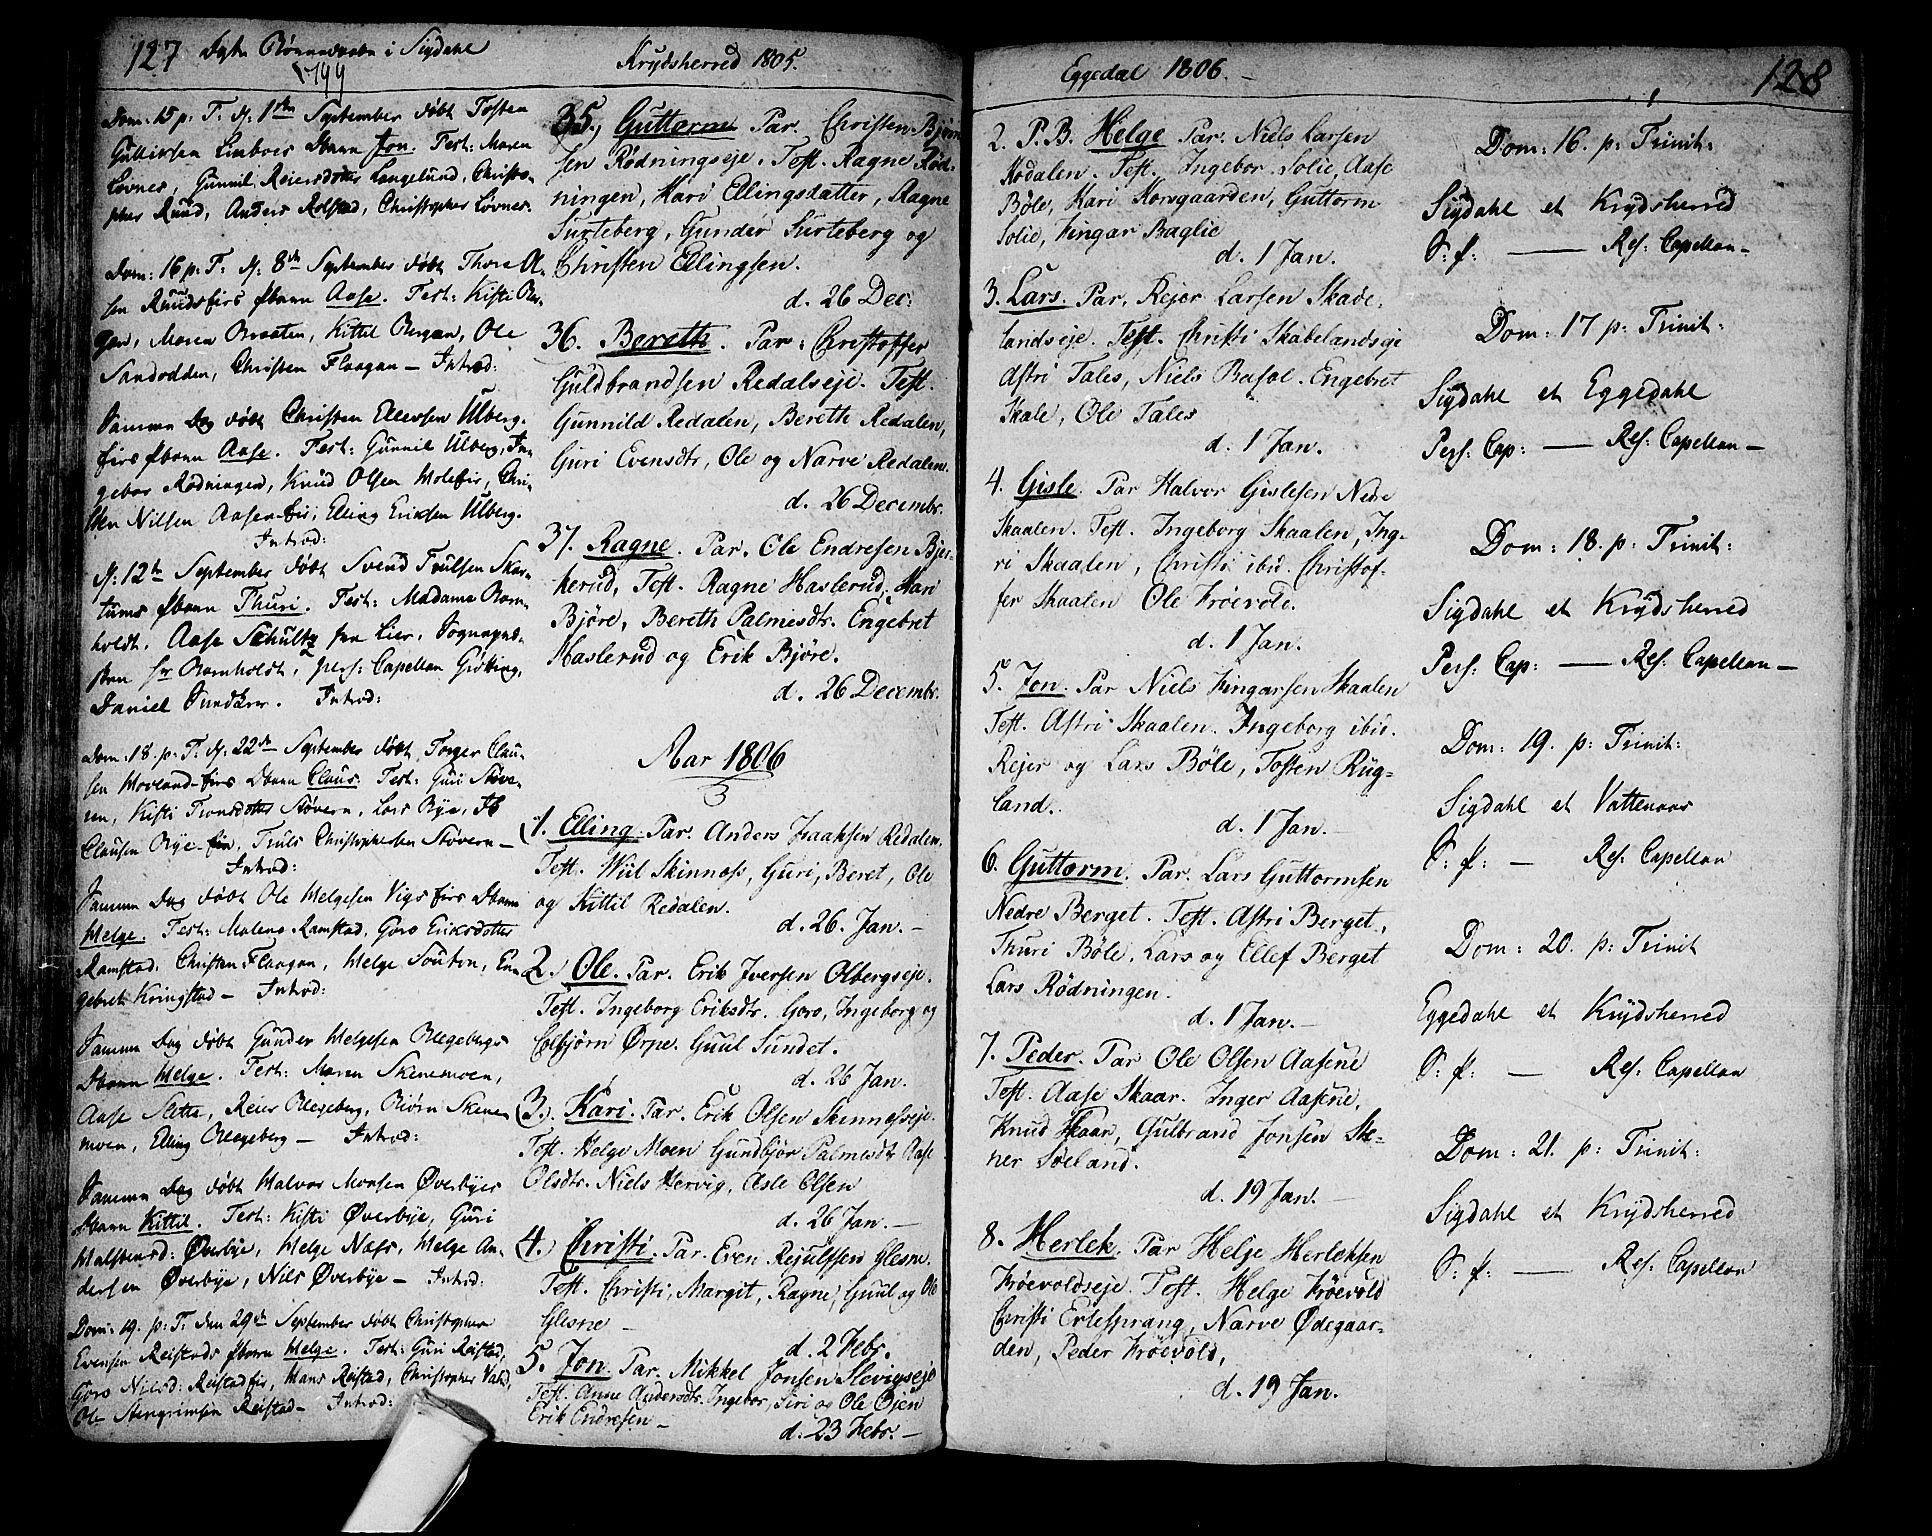 127 Døbte Børnene i Sigdahl
1799
Dom: 15 p: T. d: 1ste September døbt Tosten
Gulliksen Barn Jon. Test: Maren
Lovnes, Gunnil Reiersdotter Langelund, Christo-
pher Ruud, Anders Rolstad, Christopher Lovnes.
Dom: 16 p: T: d: 8de September døbt Thore Ol-
sen Ruudseies Barn Aase. Test: Kisti Ber-
gan, Maren Braaten, Kittel Bergan, Ole
Sandodden, Christen Flaagan – Introd:
Samme Dag døbt Christen Ellevsen Ulberg-
eies Barn Aase. Test: Gunnil Ulberg, In-
gebor Rødningen, Knud Olsen Moleeie, Chri-
sten Nilsen Aasen-eie, Elling Eriksen Ulberg.
Introd:
d: 12te September døbt Svend Trulsen Skar-
tums Barn Thuri. Test: Madame Born-
holdt, Aase Schultz fra Lier, Sognepræ-
sten hr Bornholdt, pers: Capellan Gisking,
Daniel Sundkrer. Introd:
Dom: 18. p: T. d: 22de September døbt Torger Clau-
sen Movland-eies Barn Claus. Test: Guri Støve-
ren, Kisti Tronsdotter Støvern, Lars Bye, Ib
Clausen Bye-eie, Truls Christophersen Støvern –
Introd:
Samme Dag døbt Ole Helgesen Vigs eies Barn
Helge. Test: Malene Ramstad, Goro Eriksdotter
Ramstad, Christen Flaagan, Helge Souten, En-
gebret Kringstad – Introd:
Samme Dag døbt Gunder Helgesen Blegebergs
Barn Helge. Test: Maren Skenemoen,
Aase Slette, Reier Blegeberg, Biørn Skene-
moen, Elling Blegeberg – Introd:
Samme Dag døbt Halvor Monsen Øverbyes
Barn Kittil. Test: Kisti Øverbye, Guri
Halstensd: Øverbye, Helge Næss, Helge An-
dersen Øverbye, Nils Øverbye – Introd:
Dom: 19. p: T. den 29de September døbt Christopher
Evensen Reistads Barn Helge. Test: Guri Reistad,
Goro Nilsd: Reistadeie, Hans Reistad, Christopher
Ole Stengrimsen Reistad – Introd:
Krydsherred 1805.
35. Guttorm Par. Christen Bjørn-
sen Rødningseje. Test. Ragne Rød-
ningen, Mari Ellingsdatter, Ragne
Surteberg, Gunder Surteberg og
Christen Ellingsen.
d. 26 Dec:
36. Bereth. Par: Christoffer
Guldbrandsen Redalseje. Test.
Gunnild Redalen, Bereth Redalen,
Guri Evensdtr, Ole og Narve Redalen.
d. 26 Decembr.
37. Ragne. Par. Ole Endresen Bjer-
kerud, Test. Ragne Haslerud, Mari
Bjøre, Bereth Palmesdtr. Engebret
Haslerud og Erik Bjøre.
d. 26 Decembr.
Aar 1806
1. Elling. Par. Anders Isaaksen Redalen.
Test. Wiil Skinness, Guri, Beret, Ole
og Kittil Redalen.
d. 26. Jan. –
2. Ole. Par. Erik Iversen Olbergseje.
Test. Ingeborg Eriksdtr. Goro, Ingeborg og
Esbjørn Ørpe. Guul Sundet.
d. 26 Jan.
3. Kari. Par. Erik Olsen Skinnesseje.
Test. Helge Moen Gundbjør Palmesdtr Aase
Olsdtr. Niels Hervig, Asle Olsen
d. 26 Jan. –
4. Christi. Par. Even Rejulfssen Glesne.
Test. Christi, Margit, Ragne, Guul og Ole
Glesne –
d. 2 Febr.
5. Jon. Par. Mikkel Jonsen Slevigseje
Test. Anne Andersdtr. Ingebor, Siri og Ole Øjen
Erik Endresen –
d. 23 Febr. –
Eggedal 1806. –
2. P.B. Helge Par. Niels Larsen
Modalen. Test. Ingebor Solie, Aase
Bøle, Mari Korsgaarden, Guttorm
Solie, Fingar Baglie
d. 1 Jan.
3. Lars. Par. Rejer Larsen Skade-
landseje. Test. Christi Skadelandseje
Astri Tales, Niels Basøl. Engebret
Skale, Ole Tales
d. 1 Jan.
4. Gisle. Par Halvor Gislesen Nedre
Skaalen. Test. Ingeborg Skaalen, Ing-
ri Skaalen, Christi ibid. Christof-
fer Skaalen Ole Frøevold.
d. 1 Jan.
5. Jon. Par Niels Fingarsen Skaalen
Test. Astri Skaalen. Ingeborg ibid.
Rejer og Lars Bøle, Tosten Rug-
land.
d. 1 Jan. –
6. Guttorm. Par. Lars Guttormsen
Nedre Berget. Test. Astri Berget,
Thuri Bøle, Lars og Ellef Berget
Lars Rødningen.
d. 1 Jan. –
7. Peder. Par Ole Olsen Aasene
Test. Aase Skaar. Inger Aasene,
Knud Skaar, Gulbrand Jonsen Ste-
ner Søeland.
d. 19 Jan. –
8. Herlek. Par Helge Herleksen
Frøevoldseje. Test. Helge Frøevold
Christi Ertesprang, Narve Ødegaar-
den, Peder Frøevold,
d. 19 Jan.
128
Dom: 16. p: Trinit:
Sigdahl et Krydsherred
S: f: — Res: Capellan –
Dom: 17 p: Trinit:
Sigdahl et Eggedahl
Pers: Cap: — Res: Capellan –
Dom: 18. p: Trinit:
Sigdahl et Krydsherred
Pers: Cap: — Res: Capellan –
Dom: 19. p: Trinit:
Sigdahl et Vattenaas
S: f: — Res: Capellan
Dom: 20. p: Trinit
Eggedahl et Krydsherred
S: f: — Res: Capellan
Dom: 21. p: Trinit:
Sigdahl et Krydsherred
S: f: — Res: Capellan